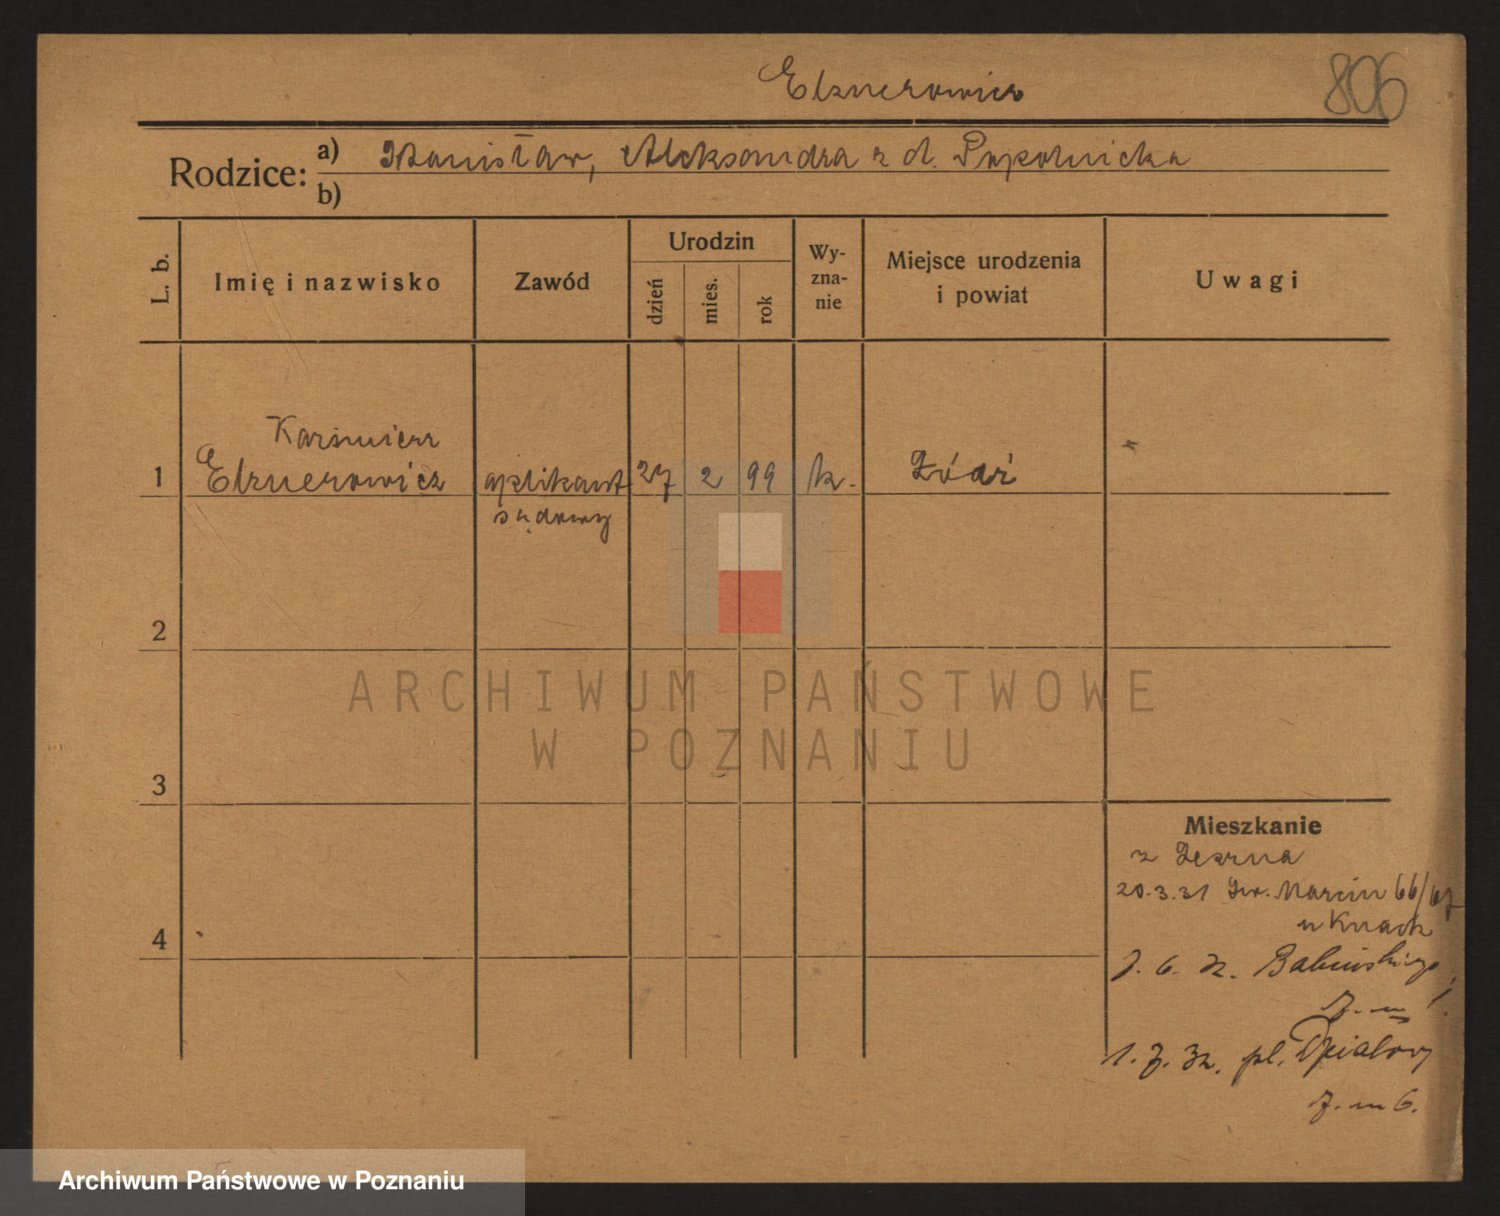 Elznerowicz
806
Rodzice: a) Stanisław, Aleksandra z d. Popolnicka
b)
L. b.
Imię i nazwisko
Zawód
Urodzin
dzień
mies.
rok
Wy-
zna-
nie
Miejsce urodzenia
i powiat
Uwagi
Kazimierz
1 Elznerowicz aplikant 27 2 99 k. Łódź
sądowy
2
3
4
Mieszkanie
z Leszna
20.3.31 Św. Marcin 66/67
u Knach
7. m 1.
1. 7. 32. pl. Działowy
7. m 6.
ARCHIWUM PAŃSTWOWE
W POZNANIU
Archiwum Państwowe w Poznaniu